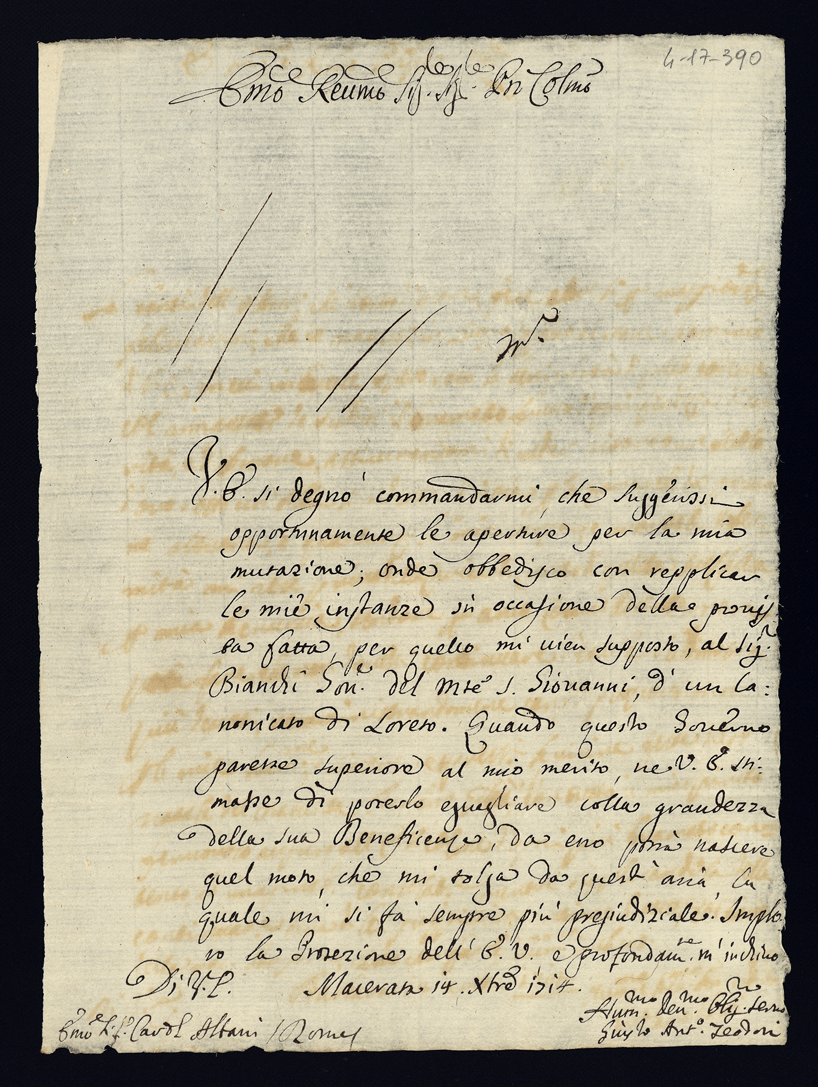 4-17-390
Em̃o Reũmo Sig.re Sig.re Pr̃n Colm̃o
V. E. si degnò commandarmi, che suggerissi
opportunamente le aperture per la mia
mutazione; onde obbedisco con repplicar
le mie instanze in occasione della provis
ta fatta, per quello mi vien supposto, al Sig.r
Bianchi Gov.e del Mte S. Giovanni, d'un Ca:
nonicato di Loreto. Quando questo Governo
paresse superiore al mio merito, ne V. E. sti:
masse di poterlo eguagliare colla grandezza
della sua Beneficenza, da esso potrà nascere
quel moto, che mi tolga da quest'aria, la
quale mi si fà sempre più pregiudiziale. Implo
ro la Protezione dell'E. V. e profondam.te m'inchino
Di V. E. Macerata 14. Xbre 1714.
Hum.mo Dev.mo Obg. Servo
Ant.o Teodori
Card.l Albani / Roma /